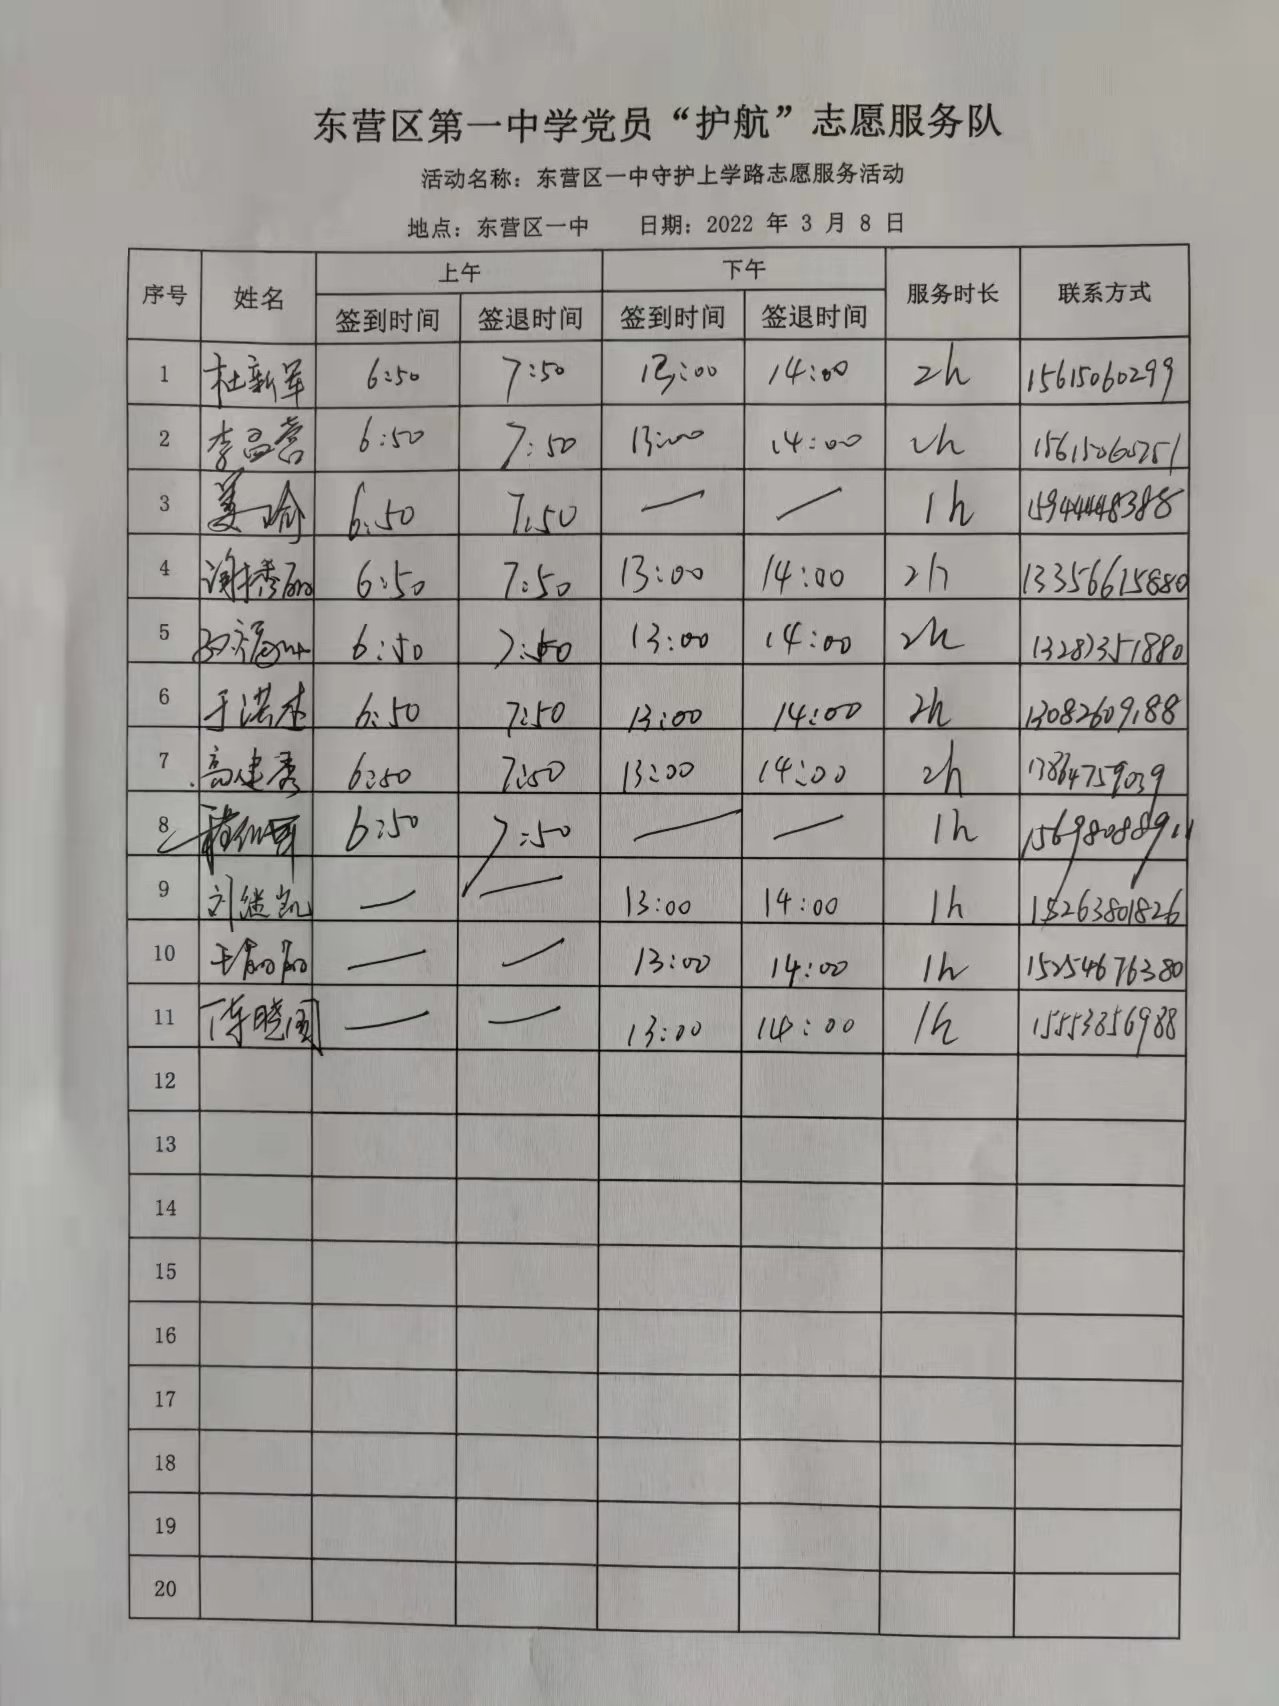 东营区第一中学党员“护航”志愿服务队
活动名称：东营区一中守护上学路志愿服务活动
地点：东营区一中 日期：2022 年 3 月 8 日
序号 姓名 上午 下午 服务时长 联系方式
签到时间 签退时间 签到时间 签退时间
1 杜新军 6:50 7:50 13:00 14:00 2h 15615060299
2 李孟营 6:50 7:50 13:00 14:00 2h 15615060251
3 姜瑜 6:50 7:50 — — 1h 15944448388
4 谢秀丽 6:50 7:50 13:00 14:00 2h 13356615880
5 6:50 7:50 13:00 14:00 2h 13287351880
6 于洪杰 6:50 7:50 13:00 14:00 2h 13082609188
7 高建秀 6:50 7:50 13:00 14:00 2h 13864759039
8 6:50 7:50 — — 1h
9 刘继凯 — — 13:00 14:00 1h 15263801826
10 王丽丽 — — 13:00 14:00 1h 15254676380
11 陈晓国 — — 13:00 14:00 1h 15553856988
12
13
14
15
16
17
18
19
20